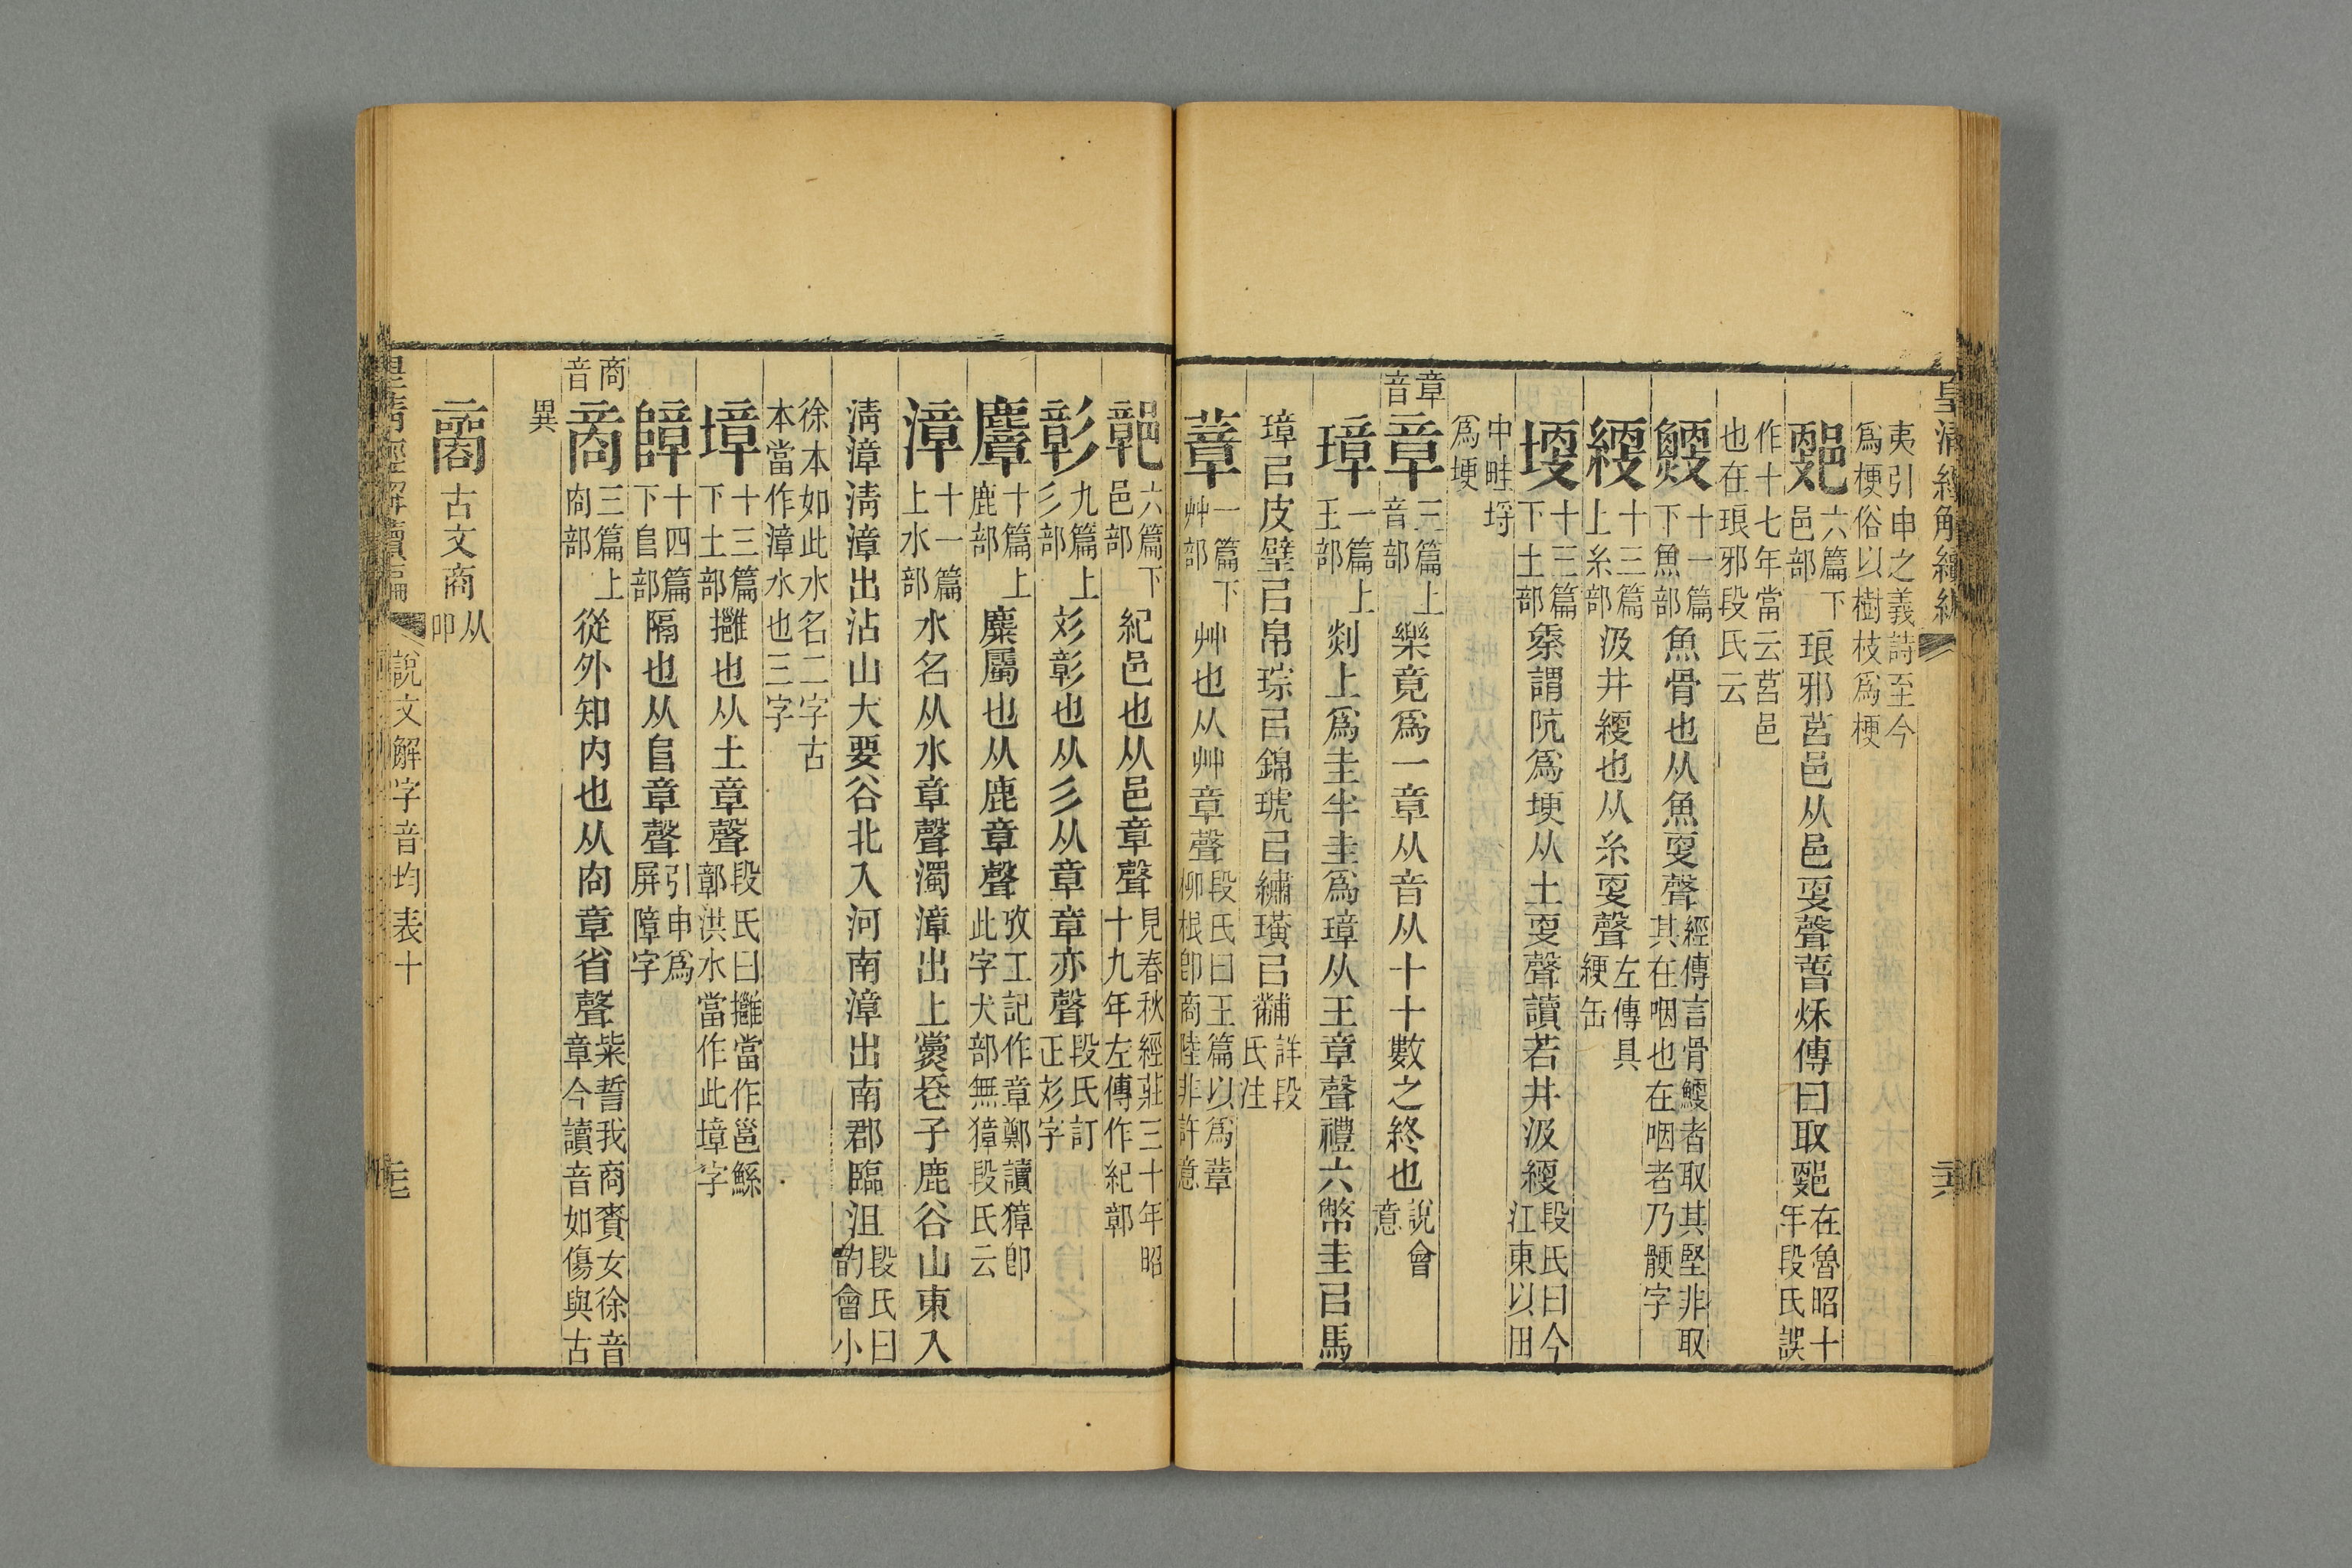 皇清經解續編
夷引申之義詩至今
爲梗俗以樹枝爲梗
六篇下
邑部
琅邪莒邑从邑㪅聲萅秌傳曰取䣆
在魯昭十
年段氏誤
作十七年當云莒邑
也在琅邪段氏云
十一篇
下魚部
魚骨也从魚㪅聲
經傳言骨鯁者取其堅非取
其在咽也在咽者乃骾字
十三篇
上糸部
汲井綆也从糸㪅聲
左傳具
綆缶
十三篇
下土部
秦謂阬爲埂从土㪅聲讀若井汲綆
段氏曰今
江東以田
中畦埒
爲埂
章
音
章
三篇上
音部
樂竟爲一章从音从十十數之終也
說會
意
璋
一篇上
王部
剡上爲圭半圭爲璋从王章聲禮六幣圭㠯馬
璋㠯皮璧㠯帛琮㠯錦琥㠯繡璜㠯黼
詳段
氏注
葦
一篇下
艸部
艸也从艸章聲
段氏曰王篇以爲蔁
柳根卽商陸非許意
鄣
六篇下
邑部
紀邑也从邑章聲
見春秋經莊三十年昭
十九年左傳作紀鄣
彰
九篇上
彡部
彣彰也从彡从章章亦聲
段氏訂
正彣字
麞
十篇上
鹿部
麋屬也从鹿章聲
攷工記作章鄭讀獐卽
此字犬部無獐段氏云
漳
十一篇
上水部
水名从水章聲濁漳出上黨長子鹿谷山東入
淸漳淸漳出沾山大要谷北入河南漳出南郡臨沮
段氏曰
韵會小
徐本如此水名二字古
本當作漳水也三字
墇
十三篇
下土部
擁也从土章聲
段氏曰擁當作邕鯀
鄣洪水當作此墇字
障
十四篇
下𨸏部
隔也从𨸏章聲
引申爲
屏障字
商
音
商
三篇上
㕯部
從外知内也从㕯章省聲
粊誓我商賚女徐音
章今讀音如傷與古
異
古文商
从
吅
皇清經解續編
說文解字音均表十